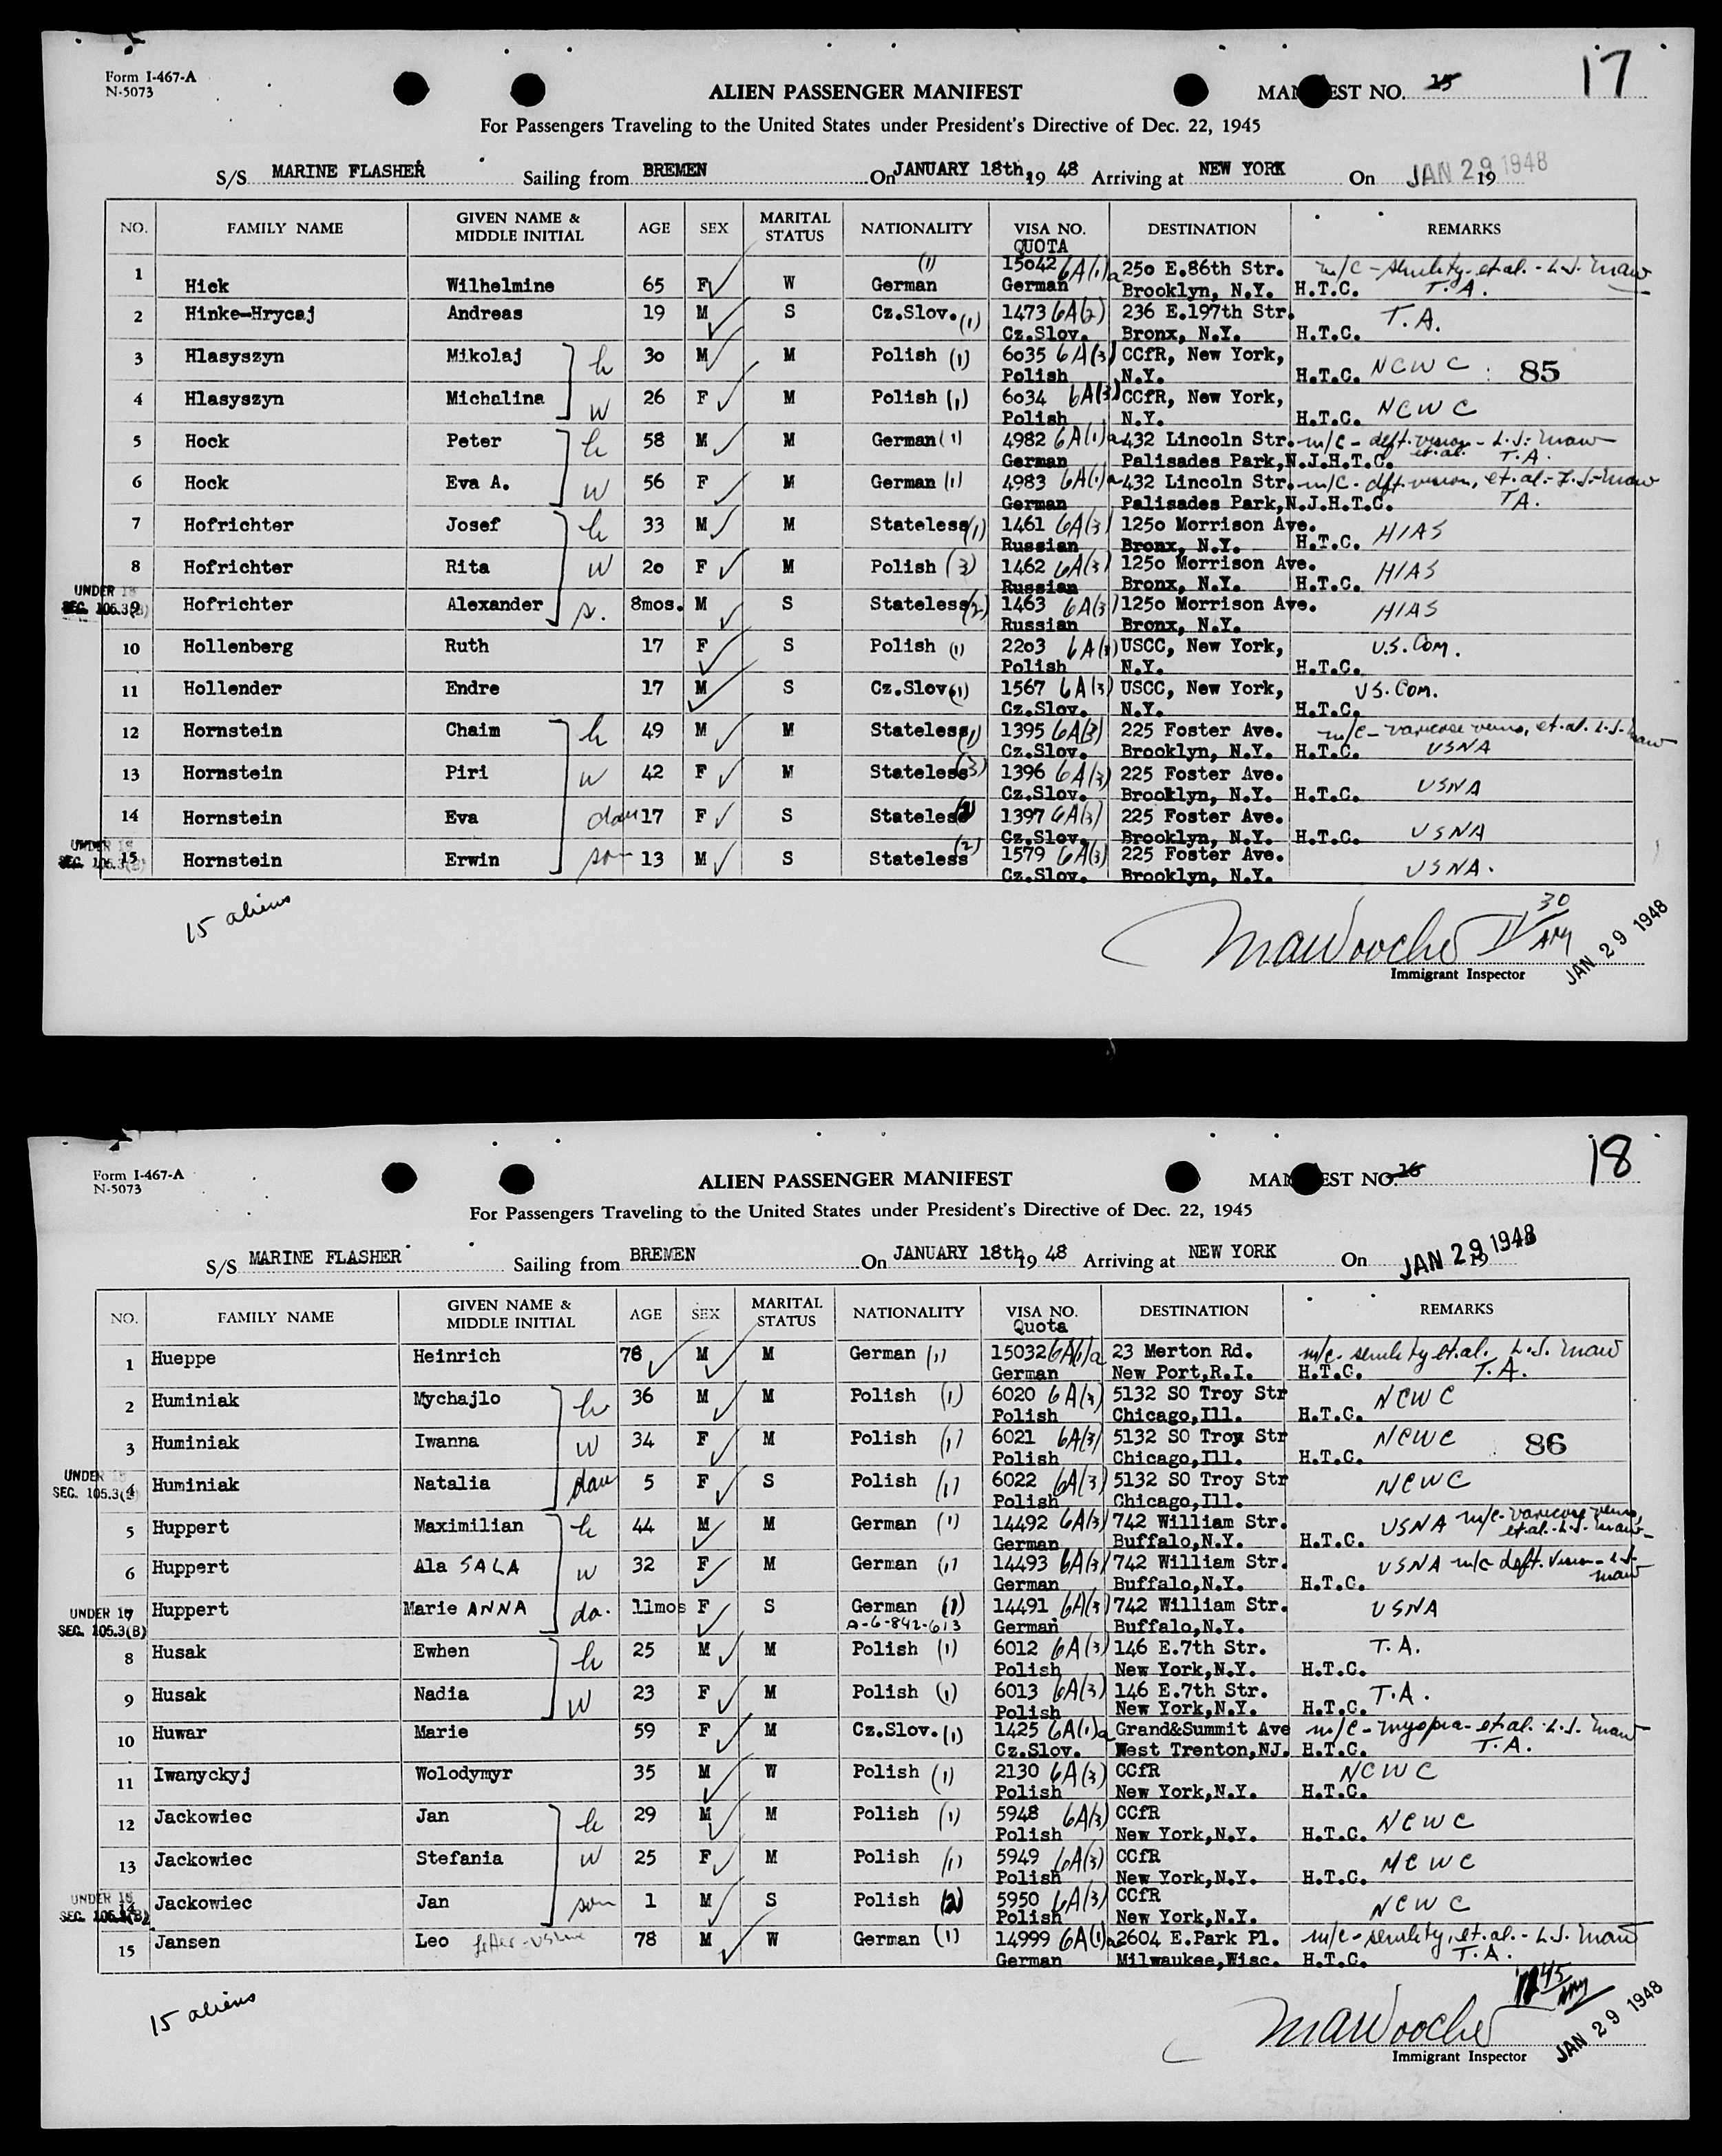 Form I-467-A
N-5073
17
ALIEN PASSENGER MANIFEST
MANIFEST NO. 25
For Passengers Traveling to the United States under President's Directive of Dec. 22, 1945
S/S MARINE FLASHER Sailing from BREMEN On JANUARY 18th, 19 48 Arriving at NEW YORK On JAN 29 1948 19
NO. FAMILY NAME GIVEN NAME & MIDDLE INITIAL AGE SEX MARITAL STATUS NATIONALITY VISA NO. QUOTA DESTINATION REMARKS
1 Hick Wilhelmine 65 F W German (1) 15042 6A(1)a 250 E.86th Str. m/c - senility et al. - L.J. Maw
German Brooklyn, N.Y. H.T.C. T.A.
2 Hinke-Hrycaj Andreas 19 M S Cz.Slov. (1) 1473 6A(2) 236 E.197th Str. T.A.
Cz.Slov. Bronx, N.Y. H.T.C.
3 Hlasyszyn Mikolaj h 30 M M Polish (1) 6035 6A(3) CCfR, New York, NCWC 85
Polish N.Y. H.T.C.
4 Hlasyszyn Michalina W 26 F M Polish (1) 6034 6A(3) CCfR, New York, NCWC
Polish N.Y. H.T.C.
5 Hock Peter h 58 M M German (1) 4982 6A(1)a 432 Lincoln Str. m/c - deft. vision - L.J. Maw
German Palisades Park,N.J. H.T.C. et al. T.A.
6 Hock Eva A. W 56 F M German (1) 4983 6A(1)a 432 Lincoln Str. m/c - dft. vision, et al. - L.J. Maw
German Palisades Park,N.J. H.T.C. TA.
7 Hofrichter Josef h 33 M M Stateless (1) 1461 6A(3) 1250 Morrison Ave. HIAS
Russian Bronx, N.Y. H.T.C.
8 Hofrichter Rita W 20 F M Polish (3) 1462 6A(3) 1250 Morrison Ave. HIAS
Russian Bronx, N.Y. H.T.C.
UNDER 18
SEC. 105.3(B)
9 Hofrichter Alexander s. 8mos. M S Stateless (2) 1463 6A(3) 1250 Morrison Ave. HIAS
Russian Bronx, N.Y.
10 Hollenberg Ruth 17 F S Polish (1) 2203 6A(3) USCC, New York, U.S. Com.
Polish N.Y. H.T.C.
11 Hollender Endre 17 M S Cz.Slov. (1) 1567 6A(3) USCC, New York, US. Com.
Cz.Slov. N.Y. H.T.C.
12 Hornstein Chaim h 49 M M Stateless (1) 1395 6A(3) 225 Foster Ave. m/c - varicose veins, et al. L.J. Maw
Cz.Slov. Brooklyn, N.Y. H.T.C. USNA
13 Hornstein Piri W 42 F M Stateless (3) 1396 6A(3) 225 Foster Ave. USNA
Cz.Slov. Brooklyn, N.Y. H.T.C.
14 Hornstein Eva dau 17 F S Stateless (2) 1397 6A(3) 225 Foster Ave. USNA
Cz.Slov. Brooklyn, N.Y. H.T.C.
UNDER 18
SEC. 105.3(B)
15 Hornstein Erwin son 13 M S Stateless (2) 1579 6A(3) 225 Foster Ave. USNA.
Cz.Slov. Brooklyn, N.Y.
15 aliens
30
JAN 29 1948
Immigrant Inspector
Form I-467-A
N-5073
18
ALIEN PASSENGER MANIFEST
MANIFEST NO. 26
For Passengers Traveling to the United States under President's Directive of Dec. 22, 1945
S/S MARINE FLASHER Sailing from BREMEN On JANUARY 18th 19 48 Arriving at NEW YORK On JAN 29 1948 19
NO. FAMILY NAME GIVEN NAME & MIDDLE INITIAL AGE SEX MARITAL STATUS NATIONALITY VISA NO. Quota DESTINATION REMARKS
1 Hueppe Heinrich 78 M M German (1) 15032 6A(1)a 23 Merton Rd. m/c - senility et al. L.J. Maw
German New Port,R.I. H.T.C. T.A.
2 Huminiak Mychajlo h 36 M M Polish (1) 6020 6A(3) 5132 SO Troy Str NCWC
Polish Chicago,Ill. H.T.C.
3 Huminiak Iwanna W 34 F M Polish (1) 6021 6A(3) 5132 SO Troy Str NCWC 86
Polish Chicago,Ill. H.T.C.
UNDER 18
SEC. 105.3(B)
4 Huminiak Natalia dau 5 F S Polish (1) 6022 6A(3) 5132 SO Troy Str NCWC
Polish Chicago,Ill.
5 Huppert Maximilian h 44 M M German (1) 14492 6A(3) 742 William Str. USNA m/c - varicose veins, et al. - L.J. Maw
German Buffalo,N.Y. H.T.C.
6 Huppert Ala SALA W 32 F M German (1) 14493 6A(3) 742 William Str. USNA m/c deft. vision - L.J. Maw
German Buffalo,N.Y. H.T.C.
UNDER 18
SEC. 105.3(B)
7 Huppert Marie ANNA da. 11mos F S German (1) 14491 6A(3) 742 William Str. USNA
A-6-842-613 German Buffalo,N.Y.
8 Husak Ewhen h 25 M M Polish (1) 6012 6A(3) 146 E.7th Str. T.A.
Polish New York,N.Y. H.T.C.
9 Husak Nadia W 23 F M Polish (1) 6013 6A(3) 146 E.7th Str. T.A.
Polish New York,N.Y. H.T.C.
10 Huwar Marie 59 F M Cz.Slov. (1) 1425 6A(1)a Grand&Summit Ave m/c - myopia - et al. L.J. Maw
Cz.Slov. West Trenton,NJ. H.T.C. T.A.
11 Iwanyckyj Wolodymyr 35 M W Polish (1) 2130 6A(3) CCfR NCWC
Polish New York,N.Y. H.T.C.
12 Jackowiec Jan h 29 M M Polish (1) 5948 6A(3) CCfR NCWC
Polish New York,N.Y. H.T.C.
13 Jackowiec Stefania W 25 F M Polish (1) 5949 6A(3) CCfR NCWC
Polish New York,N.Y. H.T.C.
UNDER 18
SEC. 105.3(B)
14 Jackowiec Jan son 1 M S Polish (2) 5950 6A(3) CCfR NCWC
Polish New York,N.Y.
15 Jansen Leo 78 M W German (1) 14999 6A(1)a 2604 E.Park Pl. m/c - senility, et al. - L.J. Maw
German Milwaukee,Wisc. H.T.C. T.A.
15 aliens
45
JAN 29 1948
Immigrant Inspector